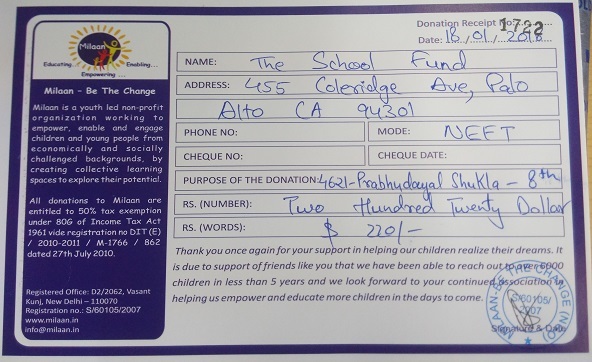 Donation Receipt No: 1722
Date: 18/01/2018
Milaan
Educating... Enabling...
Empowering ...
Milaan - Be The Change
Milaan is a youth led non-profit
organization working to
empower, enable and engage
children and young people from
economically and socially
challenged backgrounds, by
creating collective learning
spaces to explore their potential.
All donations to Milaan are
entitled to 50% tax exemption
under 80G of Income Tax Act
1961 vide registration no DIT (E)
/ 2010-2011 / M-1766 / 862
dated 27th July 2010.
Registered Office: D2/2062, Vasant
Kunj, New Delhi – 110070
Registration no.: S/60105/2007
www.milaan.in
info@milaan.in
NAME: The School Fund
ADDRESS: 455 Coleridge Ave, Palo
Alto CA 94301
PHONE NO: MODE: NEFT
CHEQUE NO: CHEQUE DATE:
PURPOSE OF THE DONATION: 4621-Prabhudayal Shukla - 8th
RS. (NUMBER): Two Hundred Twenty Dollar
RS. (WORDS): $ 220/-
Thank you once again for your support in helping our children realize their dreams. It
is due to support of friends like you that we have been able to reach out to over 6000
children in less than 5 years and we look forward to your continued association in
helping us empower and educate more children in the days to come.
MILAAN-BE THE CHANGE (NGO)
S/60105/
2007
Signature & Date